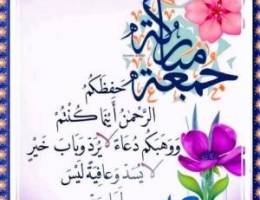 جمعة مباركة
حَفِظَكُمُ
الرَّحْمٰنُ أَيْنَمَا كُنْتُمْ
وَوَهَبَكُمْ دُعَاءً لَا يُرَدُّ وَبَابَ خَيْرٍ
لَا يُسَدُّ وَعَافِيَةً لَيْسَ
لَهَا حَدّ